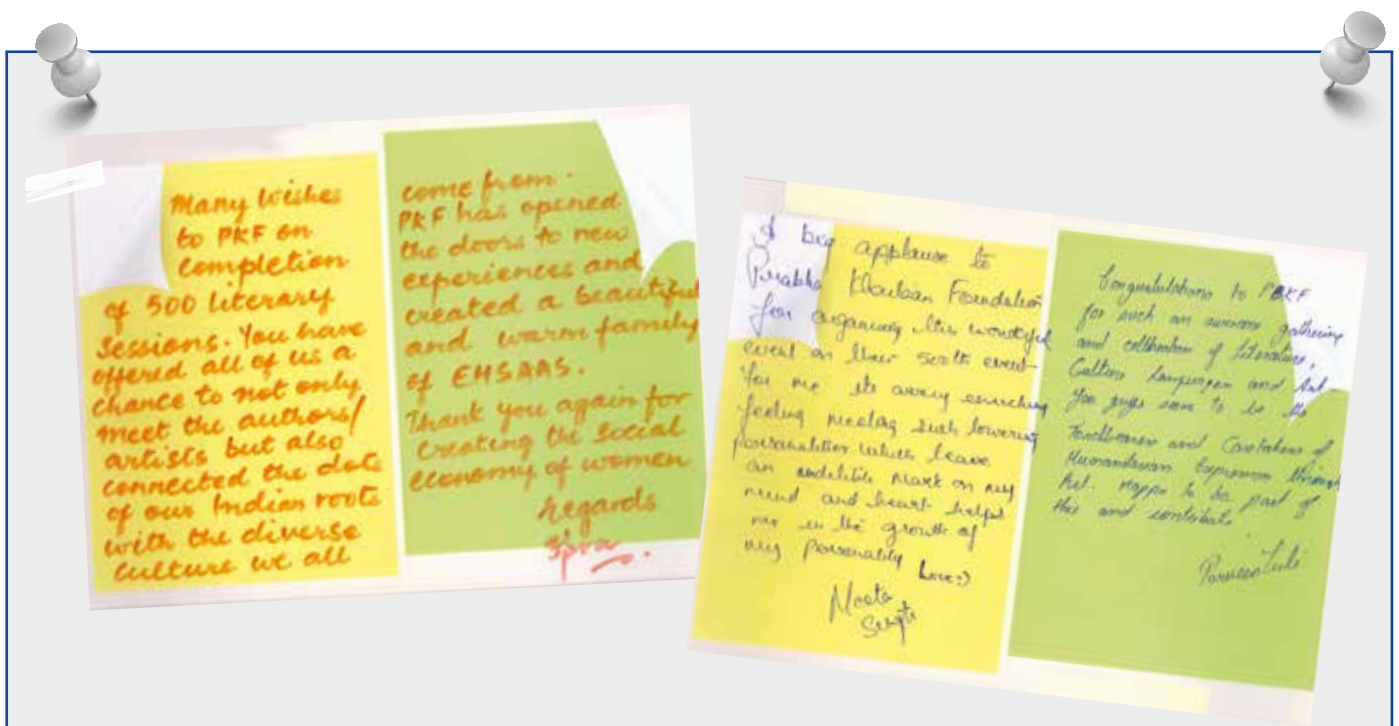 Many Wishes
to PKF on
completion
of 500 literary
Sessions. You have
offered all of us a
chance to not only
meet the authors/
artists but also
connected the dots
of our Indian roots
with the diverse
culture we all
come from.
PKF has opened
the doors to new
experiences and
created a beautiful
and warm family
of EHSAAS.
Thank you again for
creating the social
economy of women
Regards
A big applause to
Prabha Khaitan Foundation
for organising this wonderful
event on their 500th event
for me its a very enriching
feeling meeting such towering
personalities which leave
an indelible mark on my
mind and heart helps
me in the growth of
my personality
Neeta
Congratulations to PKF
for such an awesome gathering
and celebration of literature,
Culture Languages and Art
You guys seem to be the
and of
Humanitarian Expression through
Art. Happy to be part of
this and contribute